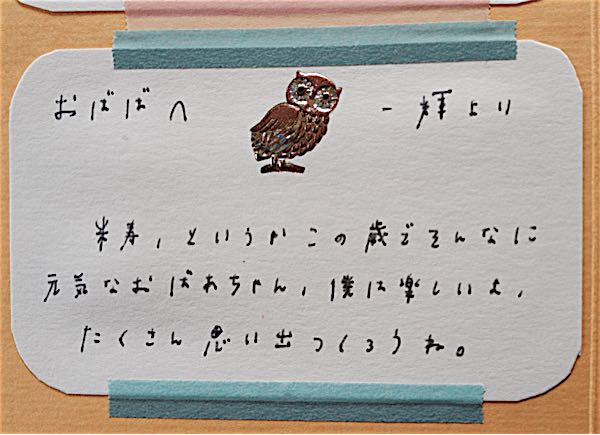 おばばへ 一輝より
米寿,というかこの歳でそんなに
元気なおばあちゃん,僕は楽しいよ,
たくさん思い出つくろうね。